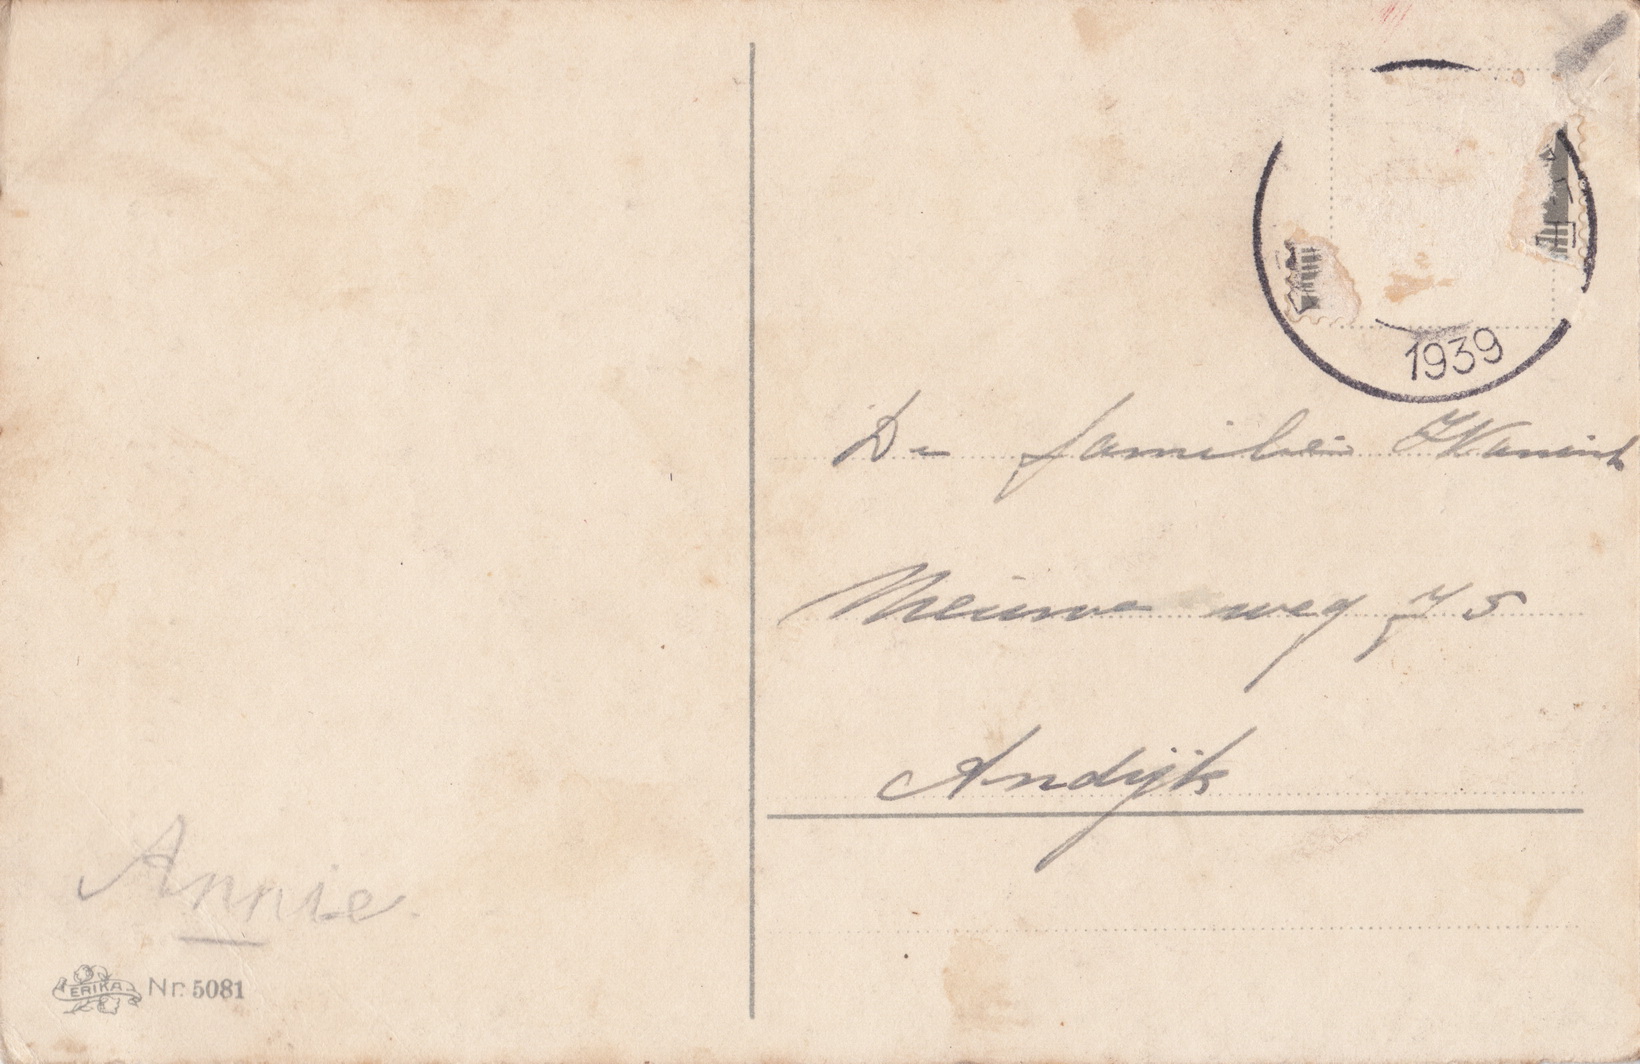 1939
De familie
Nieuwe weg 75
Andijk
Annie
ERIKA Nr. 5081